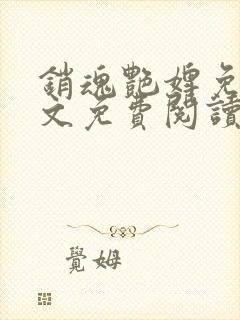 銷魂艷婢免
文免費閱讀
覺姆